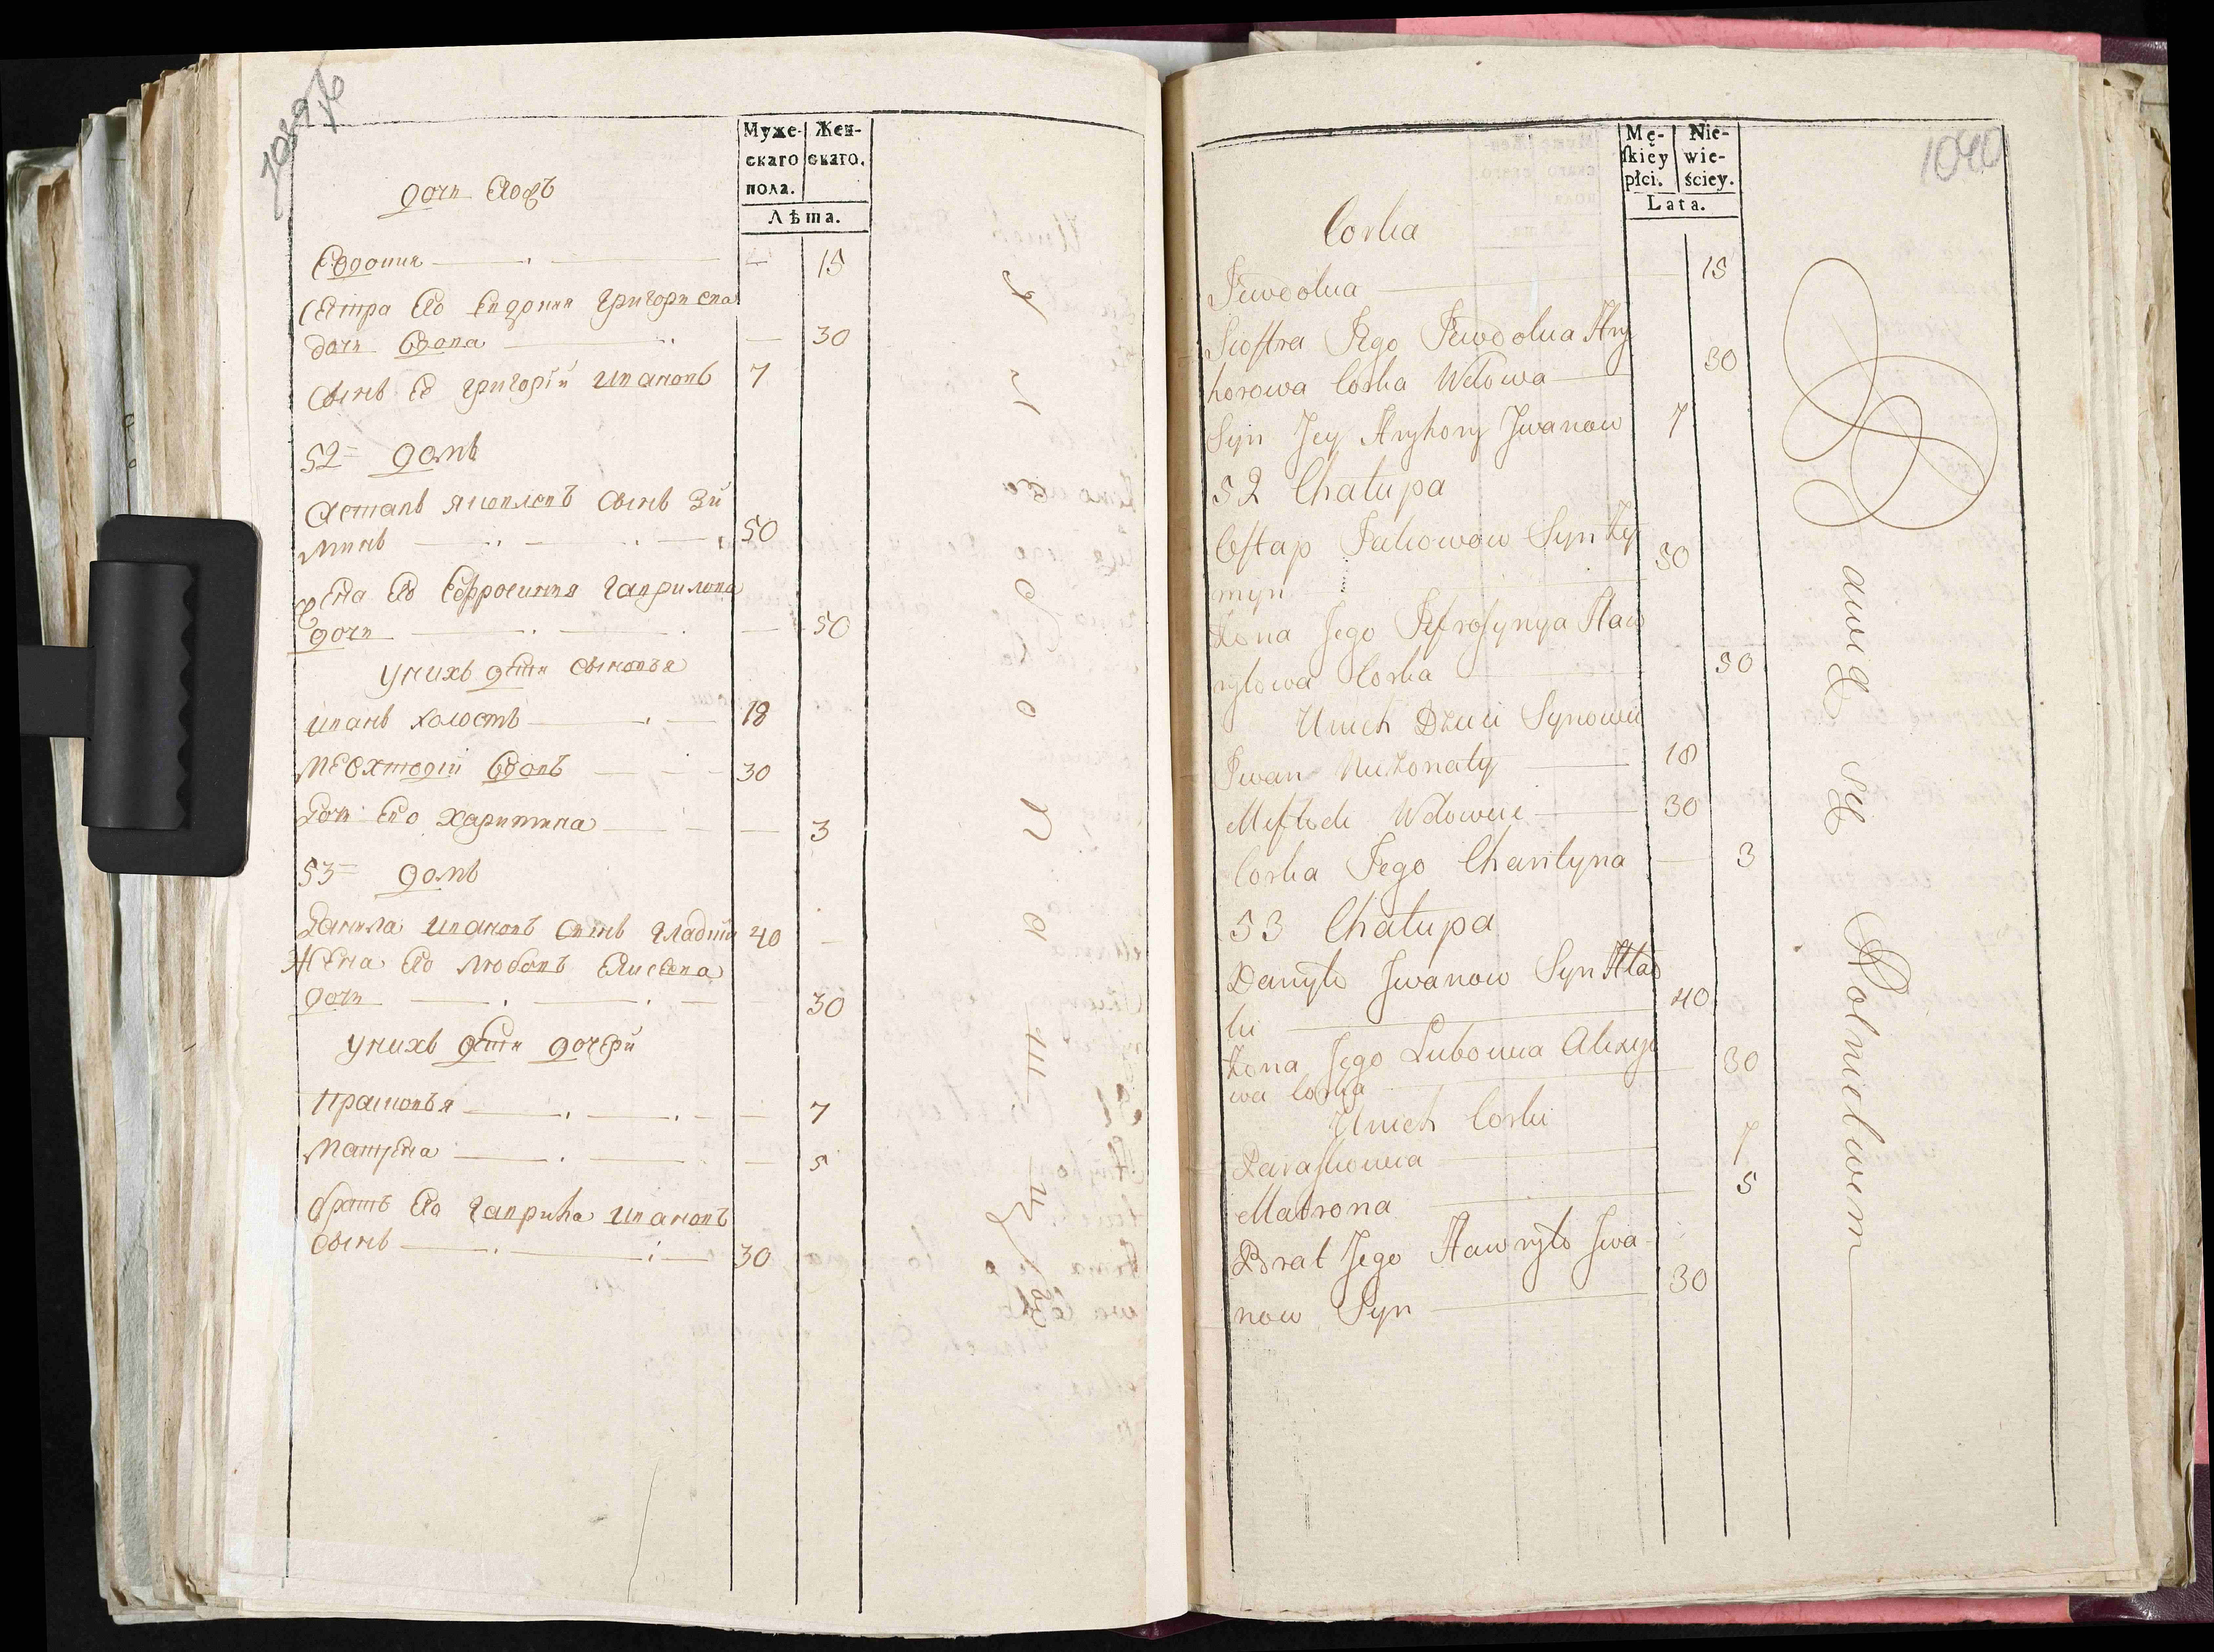 Муже-
скаго
пола.
Жен-
скаго.
Лѣта.
дочь
Евдокия — 15
Сестра Его Евдокия Григориева
дочь вдова — 30
Сынъ Её григорій ивановъ 7
52 домъ
Астапъ яковлевъ сынъ Зи
минъ 50
жена Его Ефросиния гаврилова
дочь — 50
унихъ дѣти сыновья
иванъ холостъ 18
меѳтодій вдовъ 30
дочь Его Харитина — 3
53 домъ
Данила ивановъ сынъ гладкій 40 —
Жена Его любовъ
дочь 30
унихъ дѣти дочери
прасковья — 7
матрена — 5
братъ Его гаврила ивановъ
сынъ 30
1040
Mę-
ſkiey
płci.
Nie-
wie-
ściey.
Lata.
Corka
Jewdokia — 15
Siostra Jego Jewdokia Hry
horowa Corka Wdowa 30
Syn Jey Hryhory Jwanow 7
52 Chałupa
Ostap Jakowow Syn Zy
myn 50
Zona Jego Jefrosynya Haw
ryłowa Corka 50
Unich Dzieci Synowie
Jwan Nieżonaty 18
Meftodi Wdowiec 30
Corka Jego Charityna — 3
53 Chałupa
Danyło Jwanow Syn Hład
ki 40
Zona Jego Lubowia Alexye
wa Corka 30
Unich Corki
Paraskowia 7
Matrona 5
Brat Jego Hawryło Jwa
now Syn 30
awię się Rolnictwem